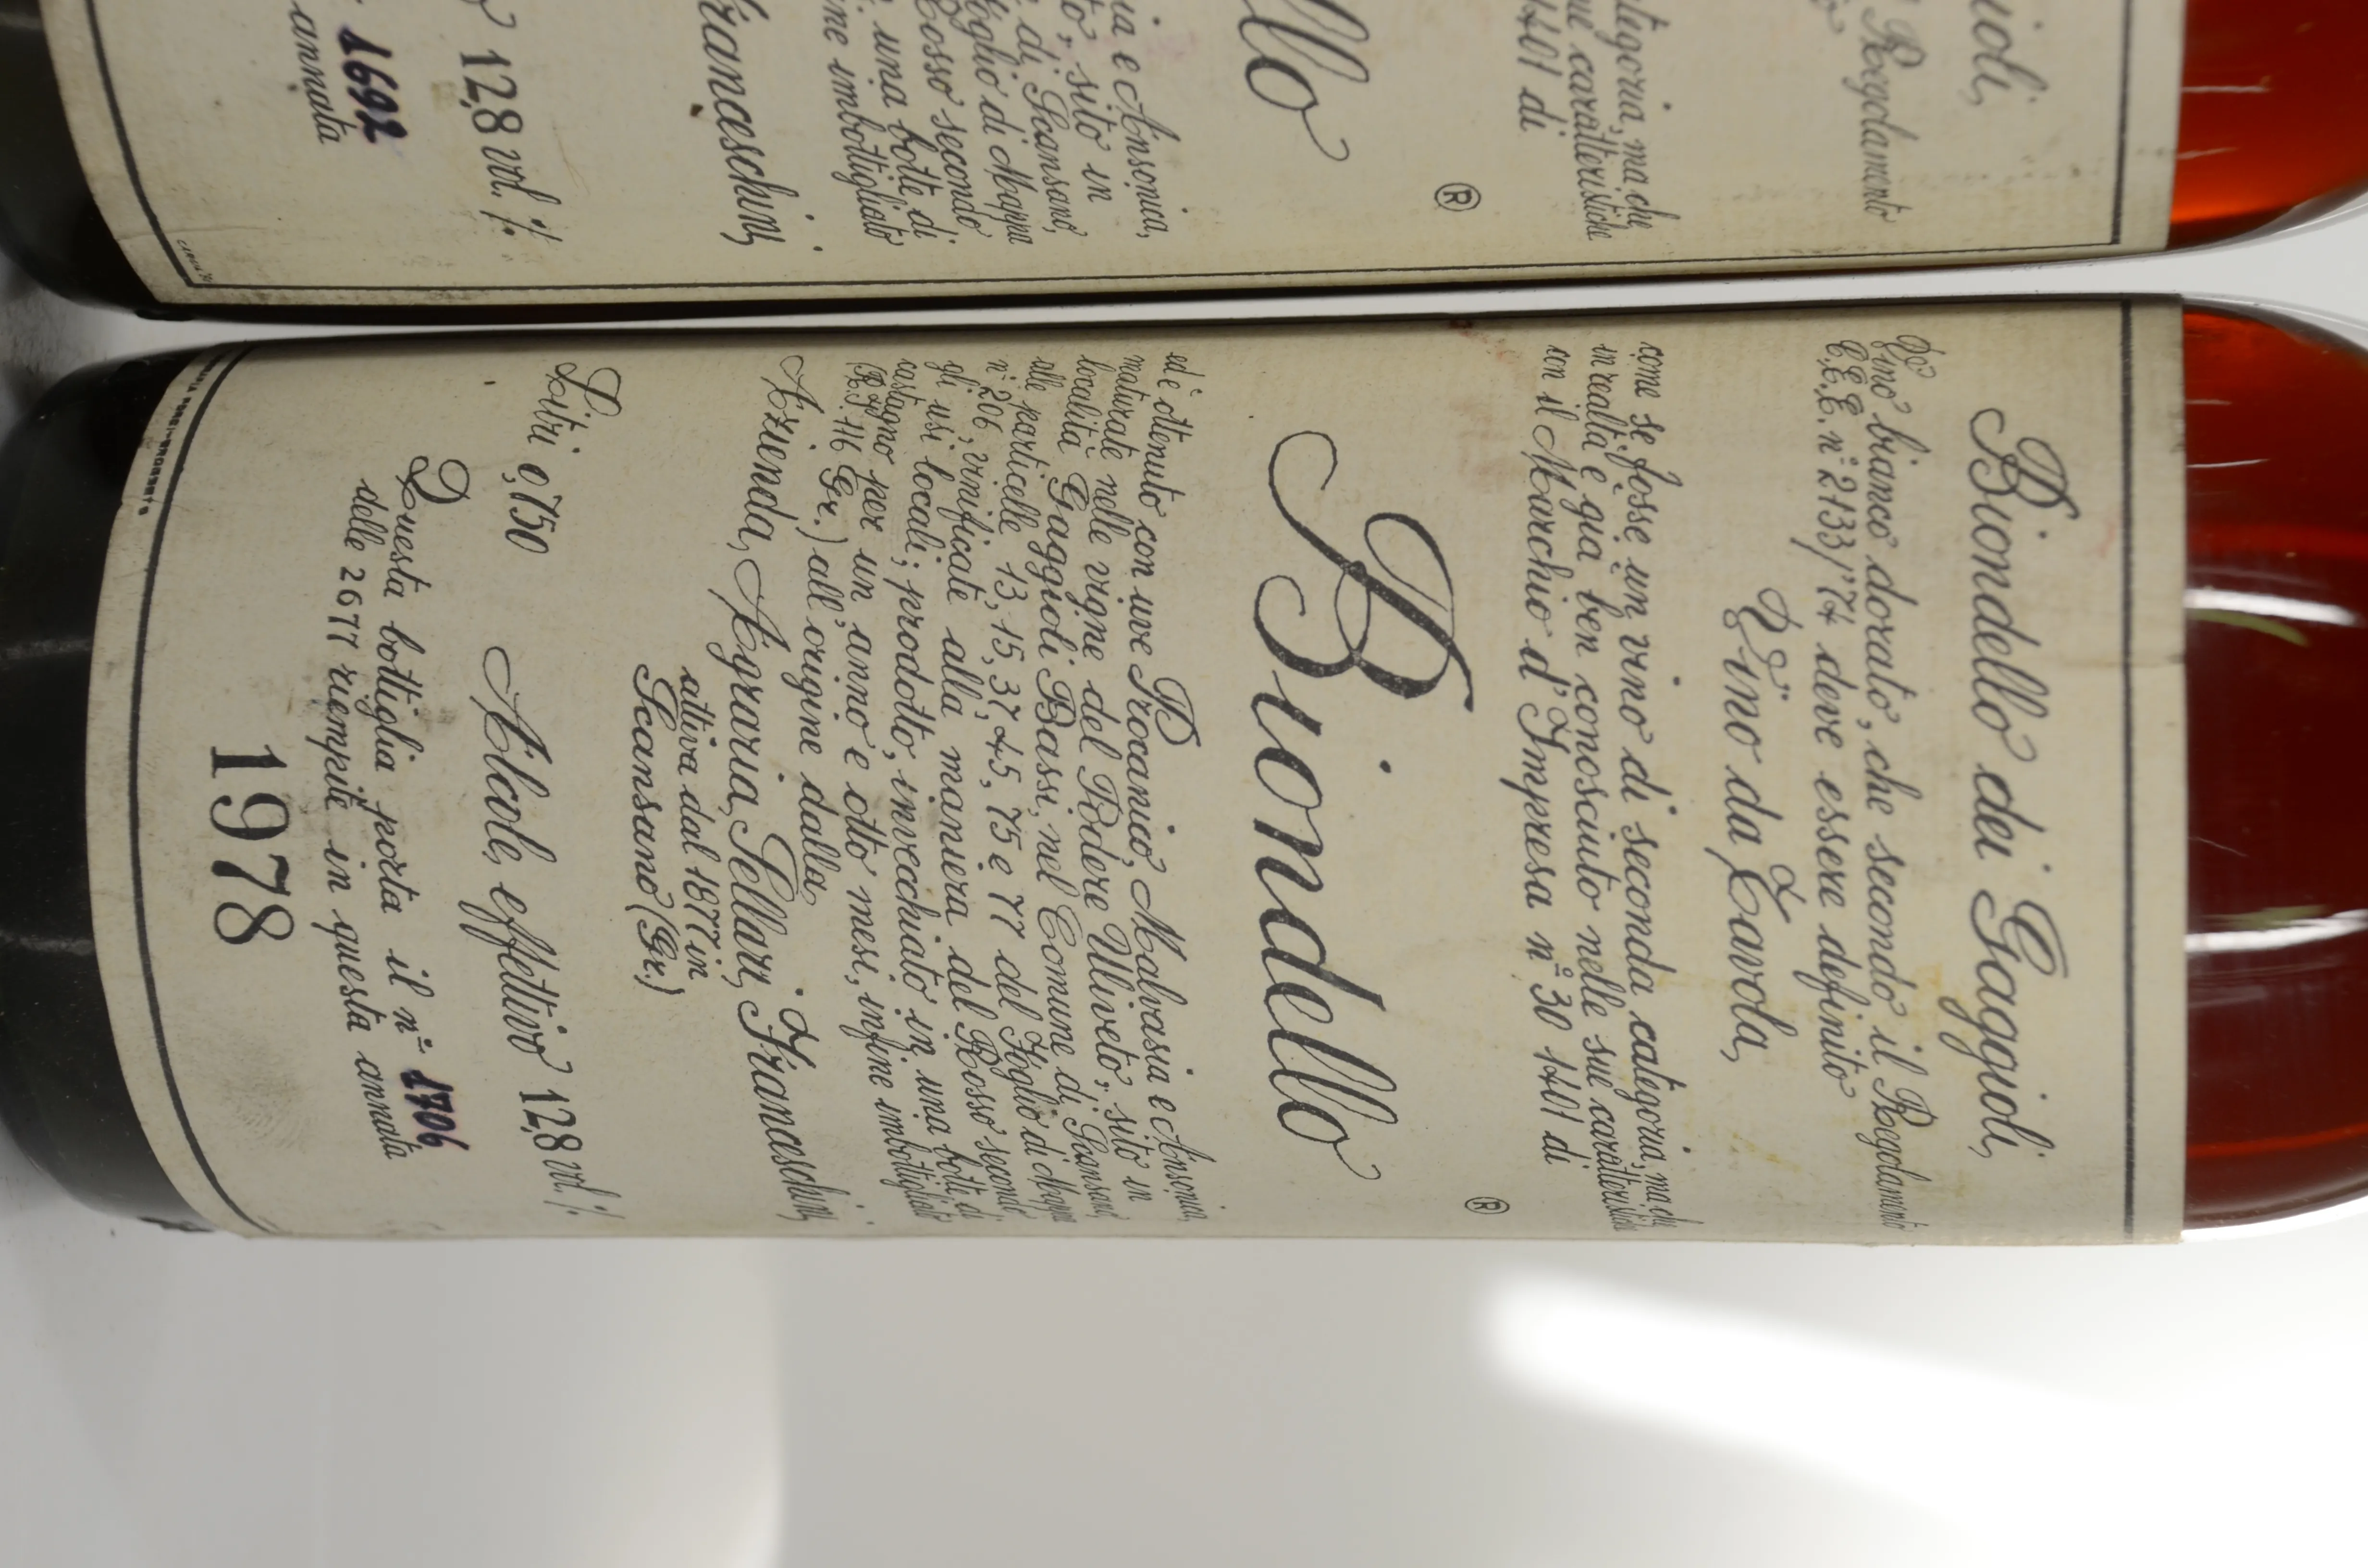 Biondello dei Gaggioli,
Vino bianco dorato, che secondo il Regolamento
C.E.E. n° 2133/74 deve essere definito
Vino da Tavola,
come se fosse un vino di seconda categoria, ma che
in realtà è già ben conosciuto nelle sue caratteristiche
con il Marchio d'Impresa n° 30 1401 di
®
Biondello
ed è ottenuto con uve Procanico, Malvasia e Ansonica,
maturate nelle vigne del Podere Ulliveto, sito in
località Gaggioli Bassi, nel Comune di Scansano,
alle particelle 13, 15, 37, 45, 75 e 77 del Foglio di Mappa
n° 206, vinificate alla maniera del Rosso secondo
gli usi locali; prodotto, invecchiato in una botte di
castagno per un anno e otto mesi, infine imbottigliato
(R.I. 416 Gr.) all'origine dalla
Azienda Agraria Sellari Franceschini,
attiva dal 1877 in
Scansano (Gr.)
Litri 0,750 Alcole effettivo 12,8 vol. %
Questa bottiglia porta il n° 1706
delle 2677 riempite in questa annata
1978
ioli,
Regolamento
categoria, ma che
caratteristiche
1401 di
®
llo
ia e Ansonica,
sito in
di Scansano,
Foglio di Mappa
Rosso secondo
una botte di
imbottigliato
Franceschini,
12,8 vol. %
1692
annata